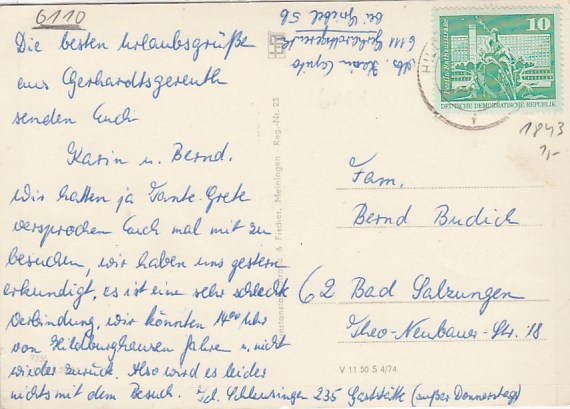 6110
Die besten Urlaubsgrüße
aus Gerhardtsgereuth
senden Euch
Karin u. Bernd.
Wir hatten ja Tante Grete
versprochen Euch mal mit zu
besuchen, wir haben uns gestern
erkundigt, es ist eine sehr schlechte
Verbindung, wir könnten 14⁰⁰ Uhr
von Hildburghausen fahren u. nicht
wieder zurück. Also wird es leider
nichts mit dem Besuch. Tel. Schleusingen 235 Gaststätte (außer Donnerstag)
Abs. Karin
6111 Gerhardtsgereuth
bei 5b
& Fischer, Meiningen · Reg.-Nr. 23
10
DEUTSCHE DEMOKRATISCHE REPUBLIK
1843
1,-
Fam.
Bernd Budich
62 Bad Salzungen
Theo-Neubauer-Str. 18
V 11 50 S 4/74